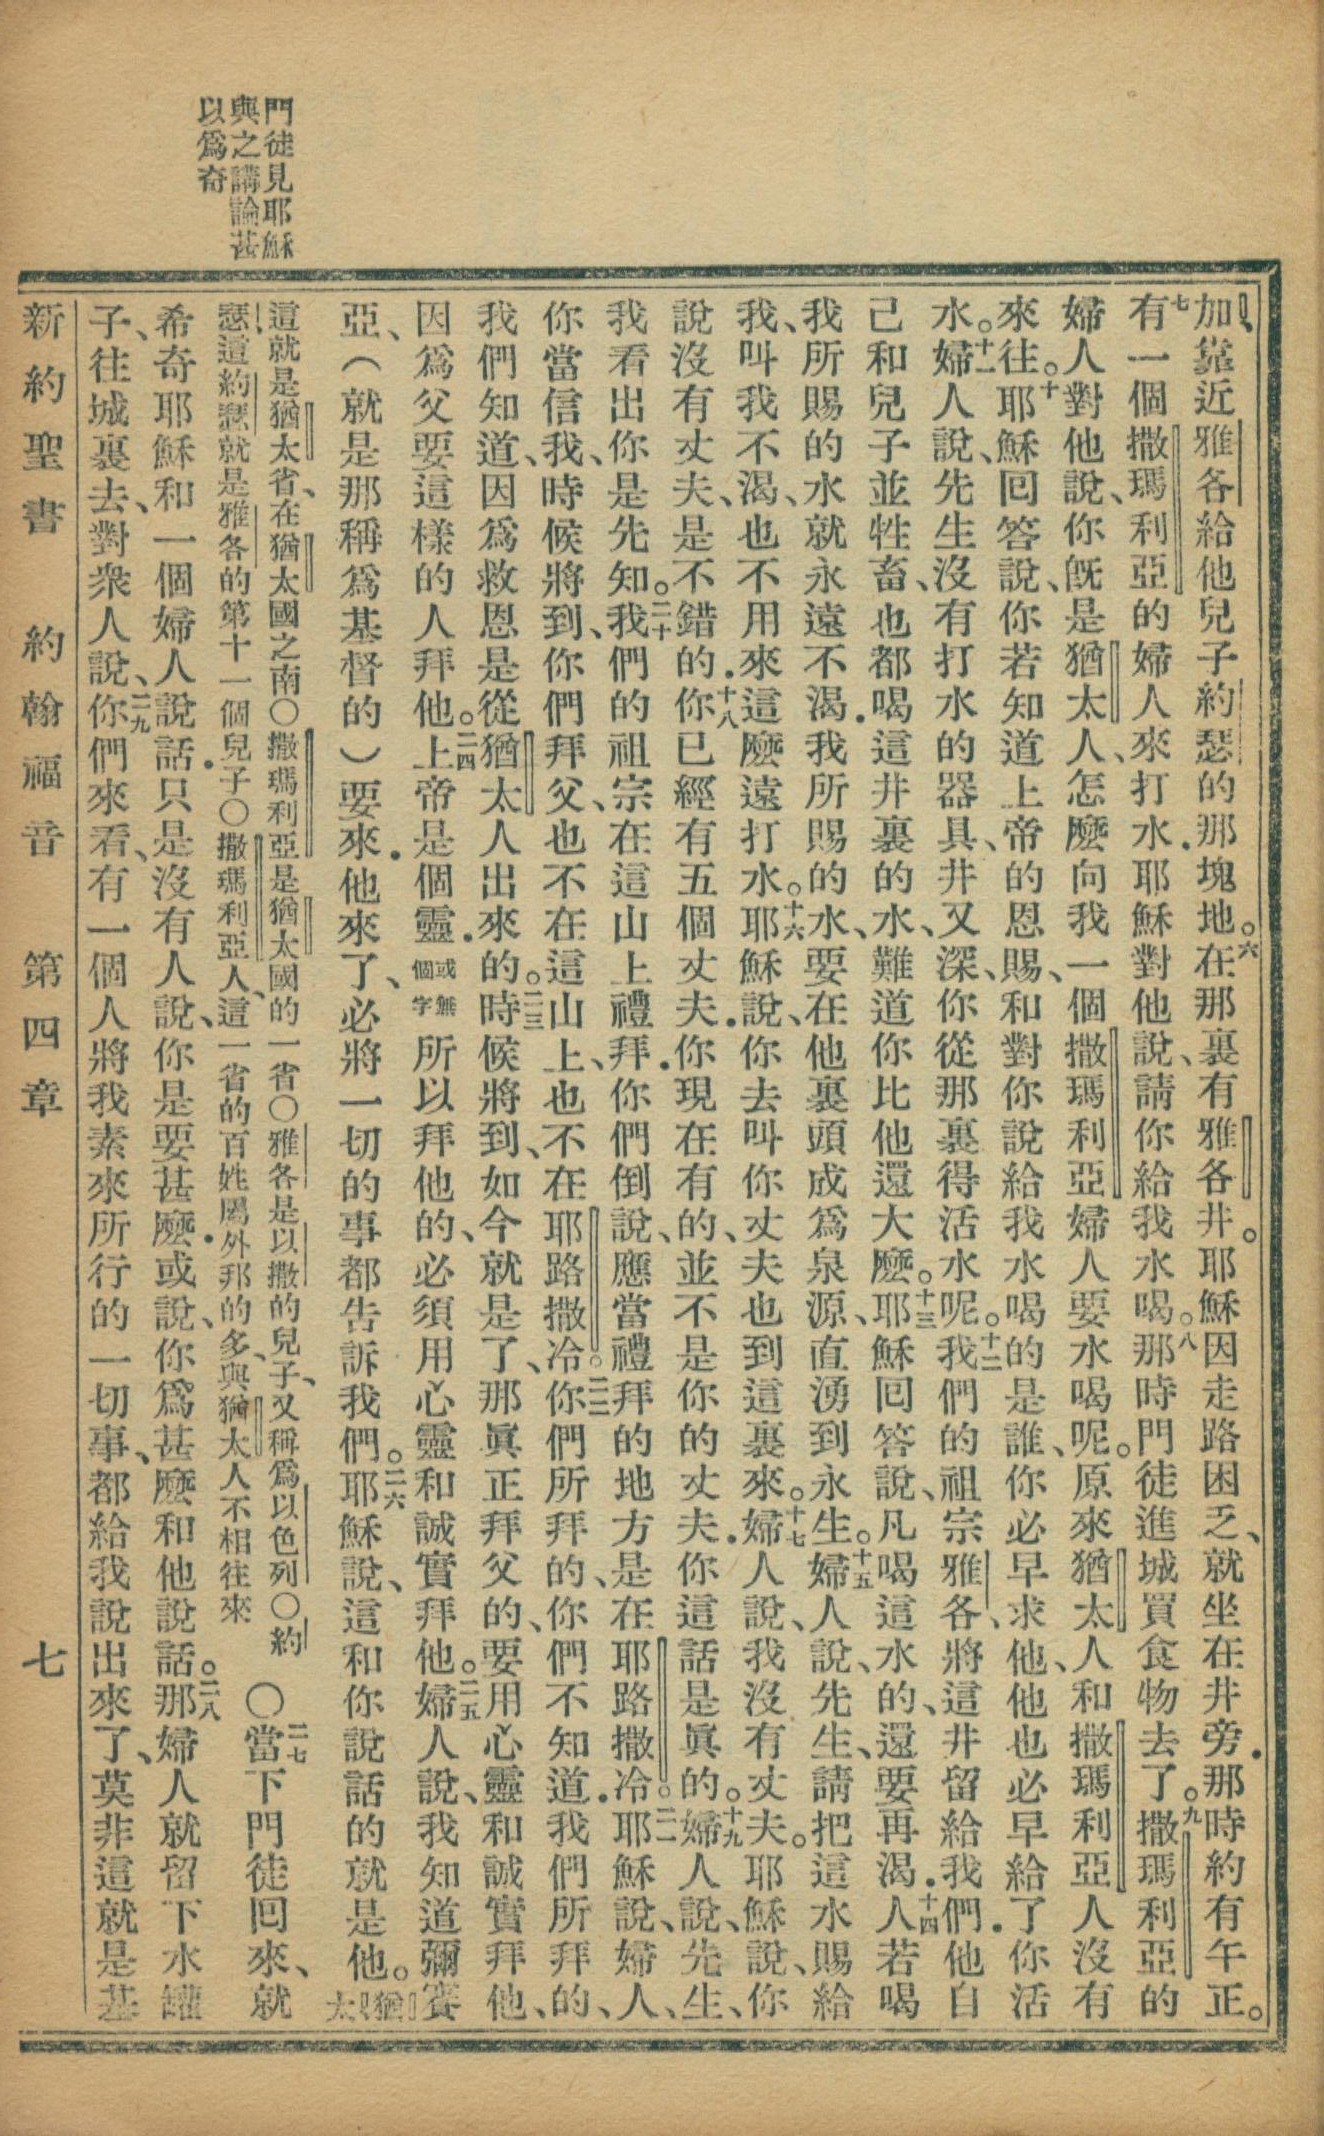 門徒見耶穌
與之講論甚
以爲奇
加、靠近雅各給他兒子約瑟的那塊地。六在那裏有雅各井。耶穌因走路困乏、就坐在井旁．那時約有午正。
七有一個撒瑪利亞的婦人來打水．耶穌對他說、請你給我水喝。八那時門徒進城買食物去了。九撒瑪利亞的
婦人對他說、你旣是猶太人、怎麼向我一個撒瑪利亞婦人要水喝呢。原來猶太人和撒瑪利亞人沒有
來往。十耶穌回答說、你若知道上帝的恩賜、和對你說給我水喝的是誰、你必早求他、他也必早給了你活
水。十一婦人說、先生沒有打水的器具、井又深、你從那裏得活水呢。十二我們的祖宗雅各、將這井留給我們．他自
己和兒子並牲畜、也都喝這井裏的水、難道你比他還大麼。十三耶穌回答說、凡喝這水的、還要再渴．十四人若喝
我所賜的水就永遠不渴．我所賜的水、要在他裏頭成爲泉源、直湧到永生。十五婦人說、先生、請把這水賜給
我、叫我不渴、也不用來這麼遠打水。十六耶穌說、你去叫你丈夫也到這裏來。十七婦人說、我沒有丈夫。耶穌說、你
說沒有丈夫、是不錯的．十八你已經有五個丈夫．你現在有的、並不是你的丈夫．你這話是眞的。十九婦人說、先生、
我看出你是先知。二十我們的祖宗在這山上禮拜．你們倒說、應當禮拜的地方是在耶路撒冷。二一耶穌說、婦人、
你當信我、時候將到、你們拜父、也不在這山上、也不在耶路撒冷。二二你們所拜的、你們不知道．我們所拜的、
我們知道、因爲救恩是從猶太人出來的。二三時候將到、如今就是了、那眞正拜父的、要用心靈和誠實拜他、
因爲父要這樣的人拜他。二四上帝是個靈．或無個字所以拜他的、必須用心靈和誠實拜他。二五婦人說、我知道彌賽
亞、（就是那稱爲基督的）要來．他來了、必將一切的事都告訴我們。二六耶穌說、這和你說話的就是他。猶太
這就是猶太省、在猶太國之南〇撒瑪利亞是猶太國的一省〇雅各是以撒的兒子、又稱爲以色列〇約
瑟、這約瑟就是雅各的第十一個兒子〇撒瑪利亞人、這一省的百姓屬外邦的多、與猶太人不相往來
〇二七當下門徒回來、就
希奇耶穌和一個婦人說話．只是沒有人說、你是要甚麼．或說、你爲甚麼和他說話。二八那婦人就留下水罐
子、往城裏去、對衆人說、二九你們來看、有一個人將我素來所行的一切事、都給我說出來了、莫非這就是基
新約聖書 約翰福音 第四章 七